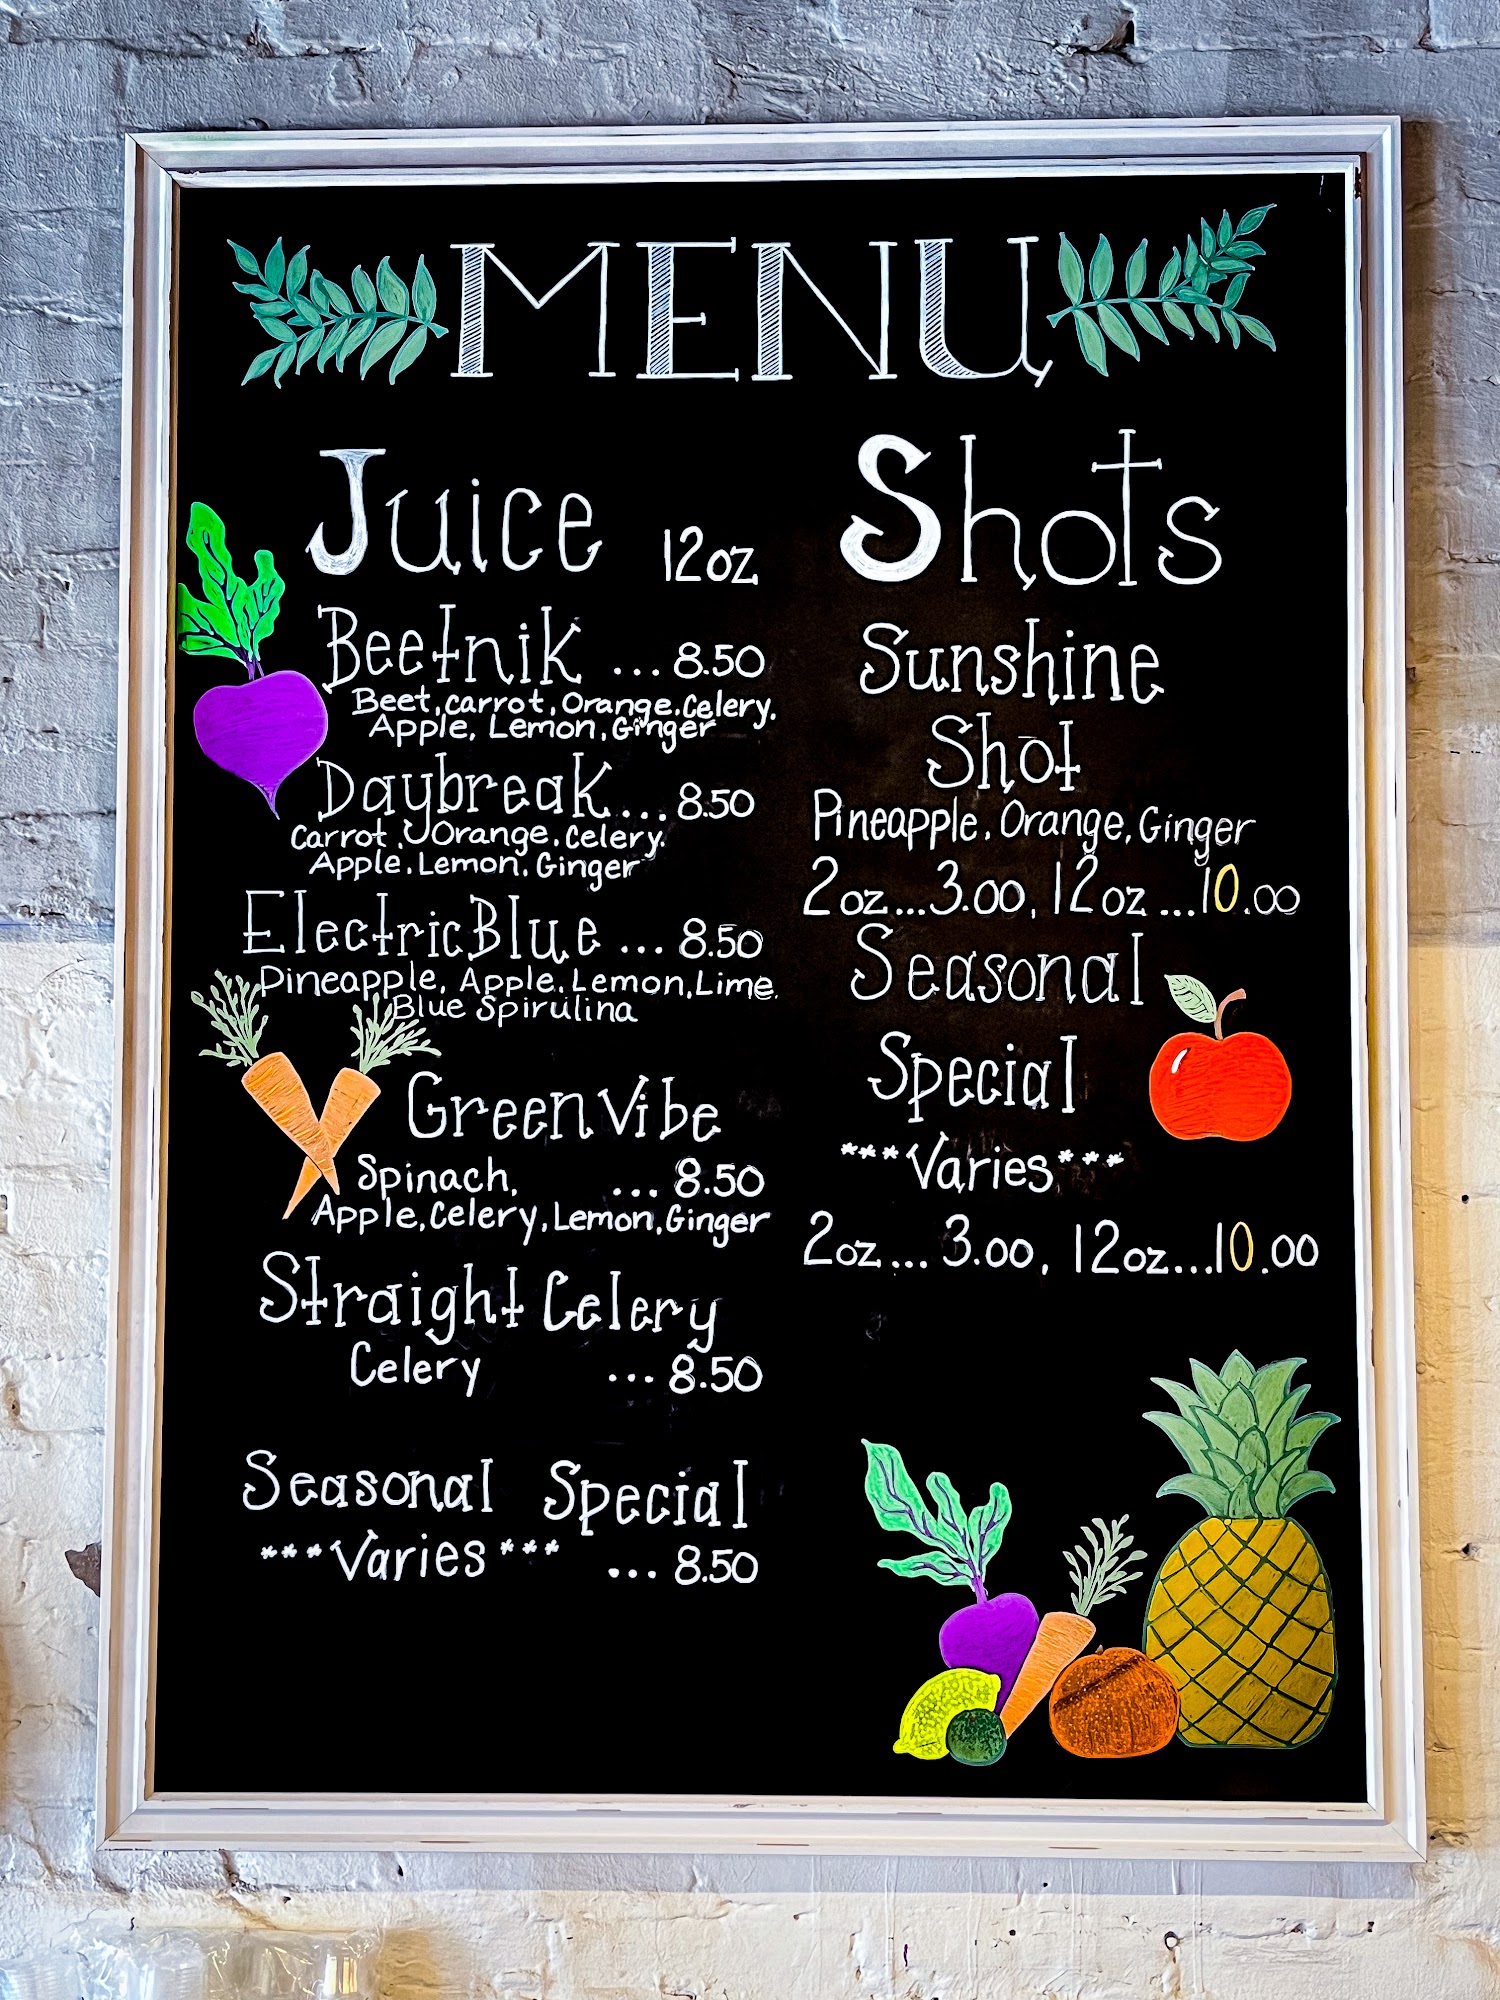 MENU
Juice 12oz
Beetnik ... 8.50
Beet, Carrot, Orange, Celery,
Apple, Lemon, Ginger
Daybreak ... 8.50
Carrot, Orange, Celery,
Apple, Lemon, Ginger
Electric Blue ... 8.50
Pineapple, Apple, Lemon, Lime,
Blue Spirulina
Green Vibe
Spinach, ... 8.50
Apple, Celery, Lemon, Ginger
Straight Celery
Celery ... 8.50
Seasonal Special
***Varies*** ... 8.50
Shots
Sunshine
Shot
Pineapple, Orange, Ginger
2oz...3.00, 12oz...10.00
Seasonal
Special
***Varies***
2oz... 3.00, 12oz...10.00